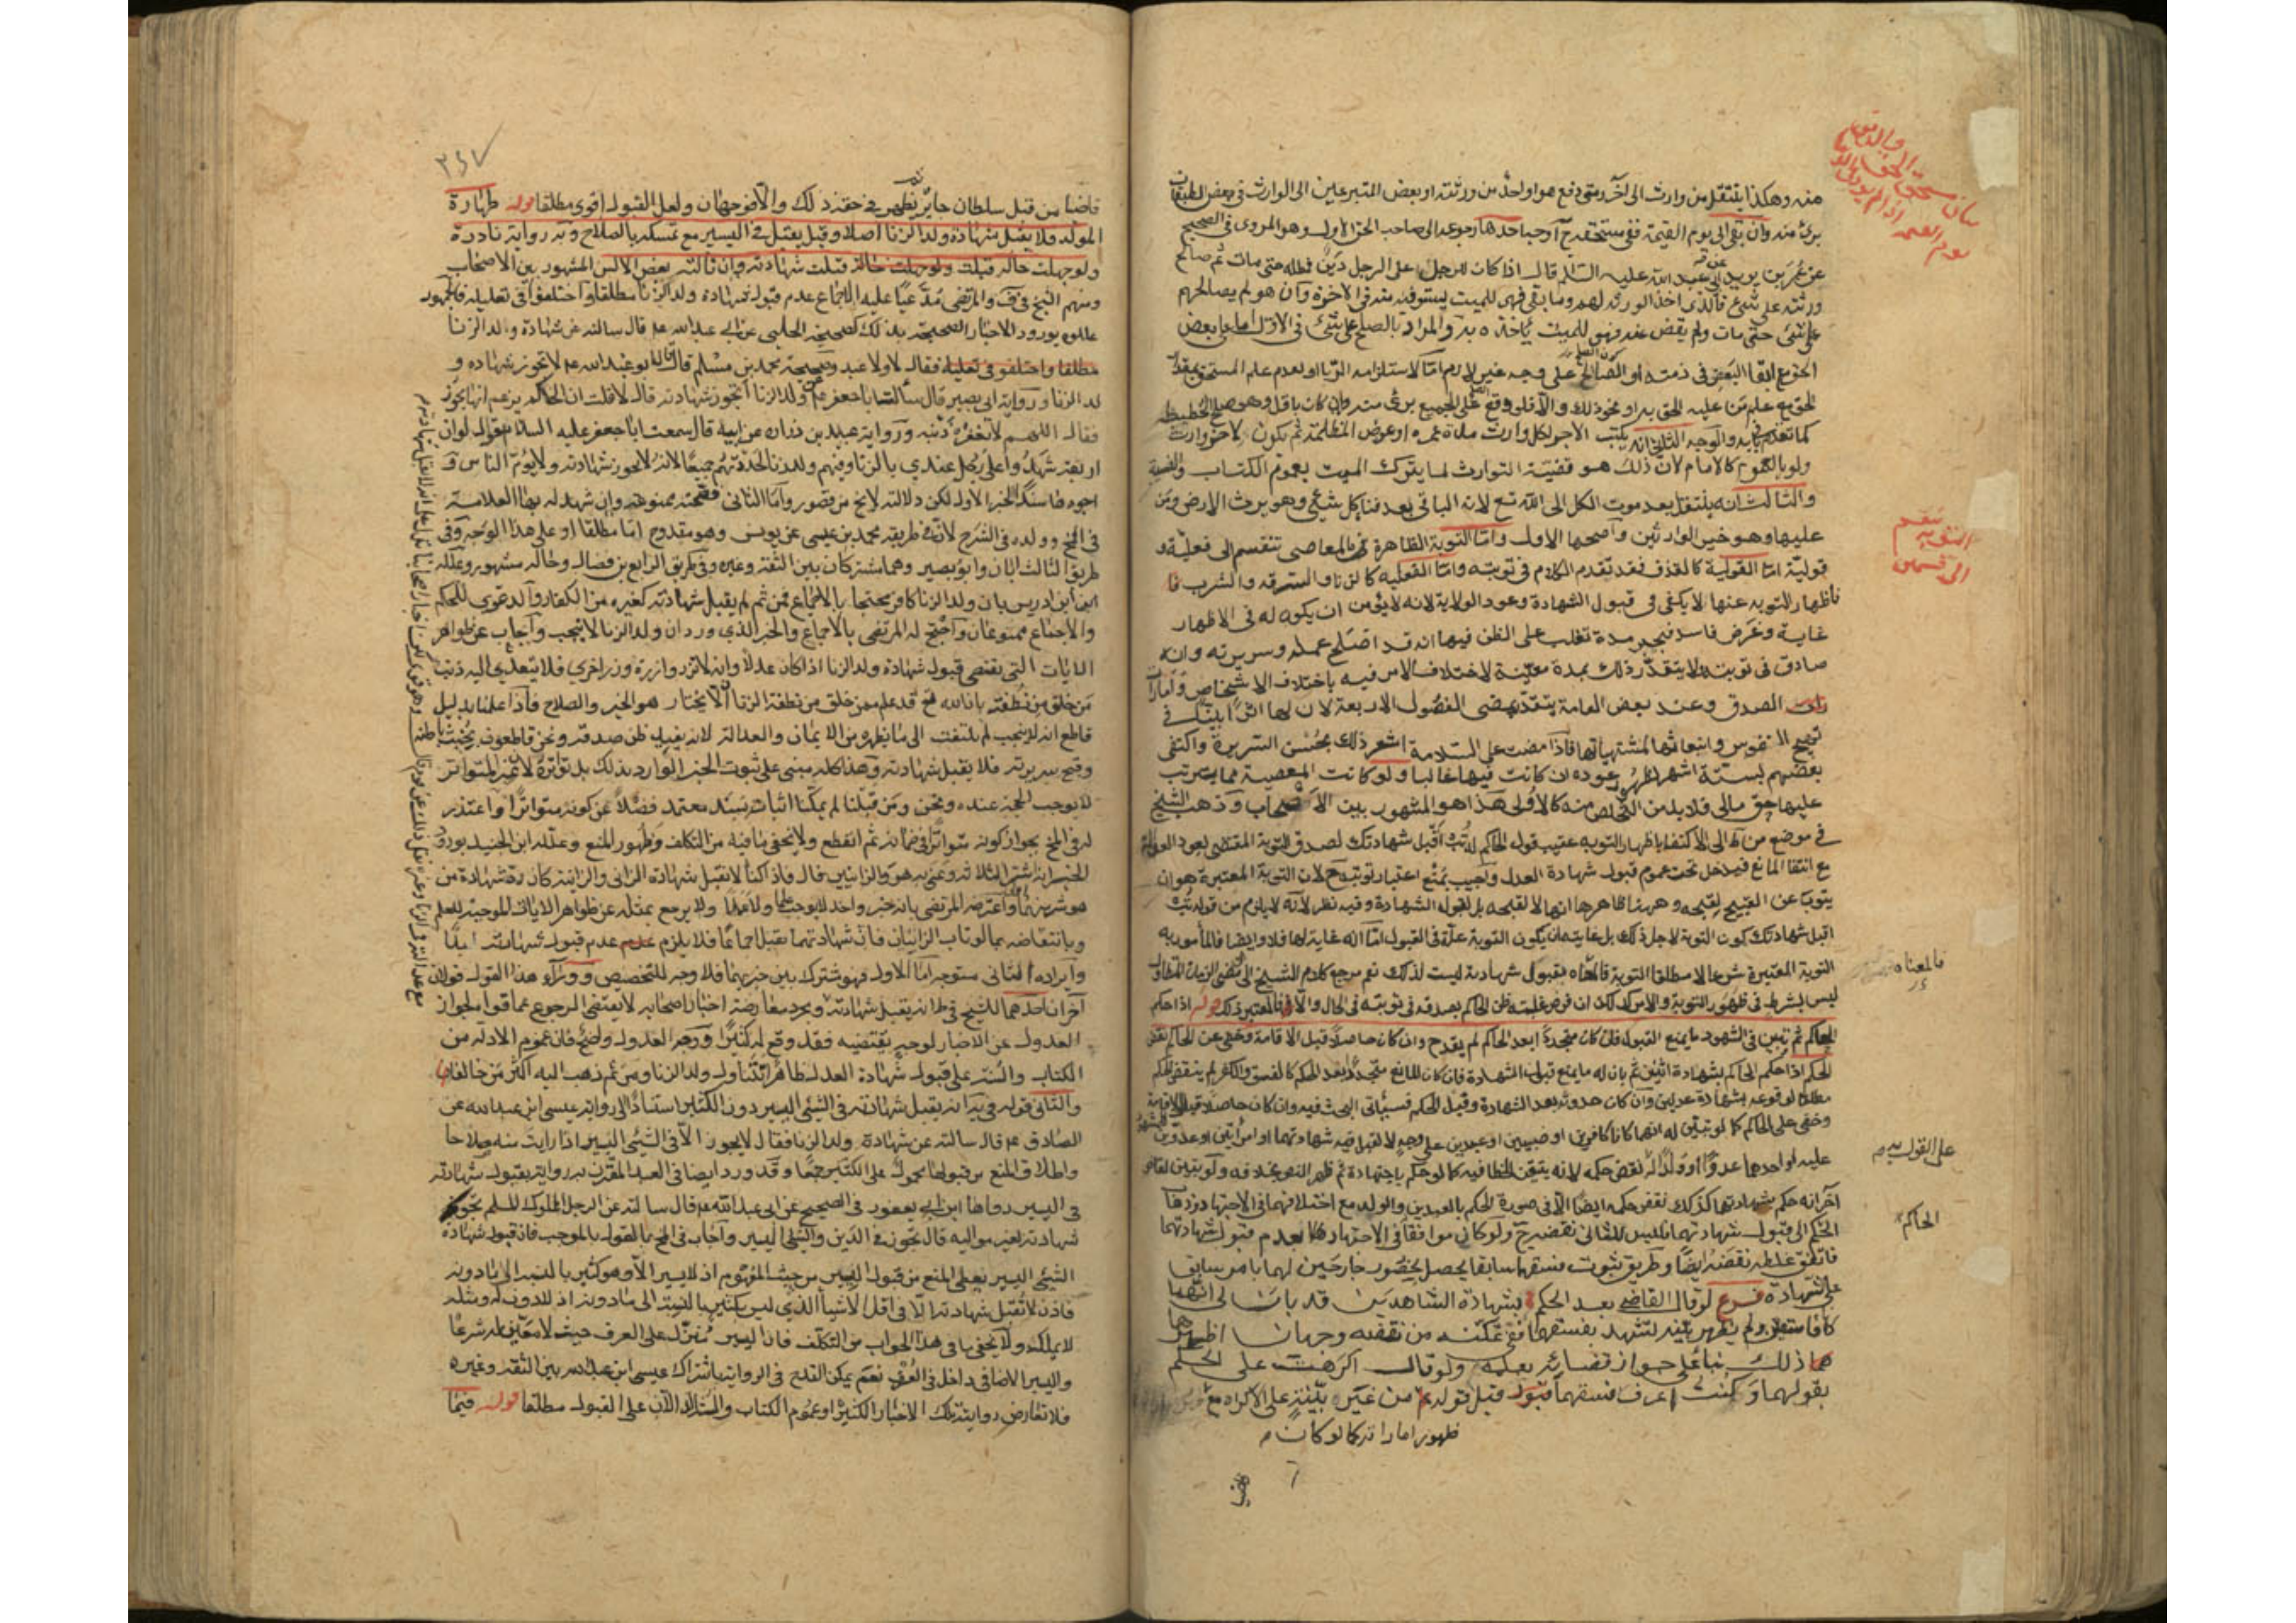 منه وهكذا ينتقل من وارث الى آخر ومتى دفع هو او احد من ورثته او بعض المتبرعين الى الوارث في بعض الطبقات
برئ منه وان بقى الى يوم القيمة ففى مستحقه ح آوجه احدها رجوعه الى صاحب الحق الاول وهو المروى في الصحيح
عن عمر بن يزيد عن ابى عبد الله عليه السلام قال اذا كان للرجل على الرجل دين فمطله حتى مات ثم صالح
ورثته على شئ فالذى اخذ الورثه لهم وما بقى فهى للميت يستوفيه منه فى الاخرة وان هو لم يصالحهم
على شئ حتى مات ولم يقض عنه فهو للميت ياخذه به والمراد بالصلح على شئ فى الاول اما على بعض
الحق مع ابقاء البعض في ذمته او الصالح على وجه غير لازم اما لاستلزامه الربا او لعدم علم المستحق بمقدار
الحق مع علم من عليه الحق به او نحو ذلك والا فلو وقع على الجميع برئ منه وان كان باقل وهو صلح الحطيطه
كما تقدم فى بابه والوجه الثانى انه يكتب الاجر لكل وارث مدة عمره او عوض المظلمة ثم يكون لآخر وارث
ولو بالعموم كالامام لان ذلك هو قضية التوارث لما يترك الميت بعموم الكتاب والسنة
والثالث انه ينتقل بعد موت الكل الى الله تع لانه الباقى بعد فناء كل شئ وهو يرث الارض ومن
عليها وهو خير الوارثين وأصحها الاول واما التوبة الظاهرة فى المعاصى تنقسم الى فعلية و
قولية اما القولية كالقذف فقد تقدم الكلام فى توبته واما الفعلية كالزنا والسرقه والشرب فا
فاظهار التوبه عنها لا يكفى فى قبول الشهادة وعود الولاية لانه لا يؤمن ان يكون له فى الاظهار
غاية وغرض فاسد فيختبر مدة تغلب على الظن فيها انه قد اصلح عمله وسريرته وانه
صادق فى توبته ولا يتقدر ذلك بمدة معينة لاختلاف الامر فيه باختلاف الاشخاص وامارات
الصدق وعند بعض العامة يتقدر بمضى الفصول الاربعة لان لها اثرا بينا فى
تهييج النفوس وانبعاثها لمشتهياتها فاذا مضت على السلامة اشعر ذلك بحسن السريرة واكتفى
بعضهم بستة اشهر لظهور عوده ان كانت فيها غالبا ولو كانت المعصية مما يترتب
عليها حق مالى فلا بد من التخلص منه كالاولى هذا هو المشهور بين الاصحاب وذهب الشيخ
فى موضع من ط الى الاكتفاء باظهار التوبه عقيب قول الحاكم له تب أقبل شهادتك لصدق التوبة المقتضى لعود العدالة
مع انتفاء المانع فيدخل تحت عموم قبول شهادة العدل واجيب بمنع اعتبار توبته ح لان التوبة المعتبرة هو ان
يتوب عن القبيح لقبحه وههنا ظاهرها انها لا لقبحه بل لقبول الشهادة وفيه نظر لانه لا يلزم من قوله تب
اقبل شهادتك كون التوبة لاجل ذلك بل غايته ان يكون التوبة علة فى القبول اما انه غاية لها فلا وايضا فالمأمور به
التوبة المعتبرة شرعا لا مطلقا التوبة فالمعناه بقبول شهادته ليست لذلك نعم مرجع كلام الشيخ الى مضى الزمان المتطاول
ليس بشرط فى ظهور التوبة والامر كذلك ان فرض غلبة ظن الحاكم بصدقه فى توبته فى الحال والا فالمعتبر ذلك قوله اذا حكم
الحاكم ثم تبين فى الشهود ما يمنع القبول فان كان متجددا بعد الحكم لم يقدح وان كان حاصلا قبل الاقامة وخفى عن الحاكم نقض
الحكم اذا حكم الحاكم بشهادة اثنين ثم بان له ما يمنع قبول الشهادة فان كان المانع متجددا بعد الحكم كالفسق والكفر لم ينتقض الحكم
مطلقا لوقوعه بشهادة عدلين وان كان حدوثه بعد الشهادة وقبل الحكم فسيأتى البحث فيه وان كان حاصلا قبل الاقامة
وخفى على الحاكم كما لو تبين له انهما كانا كافرين او صبيين او عبدين على وجه لا تقبل فيه شهادتهما او امرأتين او عدوين للمشهود
عليه او احدهما عدوا او ولدا له نقض حكمه لانه يتيقن الخطا فيه كما لو حكم باجتهاده ثم ظهر النص بخلافه ولو تبين لقاض
آخر انه حكم بشهادتهما كذلك نقض حكمه ايضا الا فى صورة الحكم بالعبدين والولد مع اختلافهما فى الاجتهاد وذهاب
الحكم الى قبول شهادتهما فليس للثانى نقضه ح ولو كانى موافقا فى الاجتهاد لعدم قبول شهادتهما
فاتفق غلطه نقضه ايضا وطريق ثبوت فسقهما سابقا يحصل بحضور جارحين لهما بامر سابق
على الشهادة فرع لو قال القاضى بعد الحكم بشهادة الشاهدين قد بان لى انهما
كانا فاسقين ولم يظهر بينة تشهد بفسقهما ففى تمكنه من نقضه وجهان اظهرهما
ذلك بناء على جواز قضائه بعلمه ولو قال اكرهت على الحكم
بقولهما وكنت اعرف فسقهما قبل قوله من غير بينة على الاكراه مع
ظهور اماراته كما لو كان
قاضيا
بيان مستحق الحق
يوم القيمة
تنقسم
التوبة
الى قسمين
فالمعناه
على القول به
الحاكم
٢٤٧
قاضيا من قبل سلطان جاير يظهر فى حقه ذلك والا فوجهان ولعل القبول اقوى مطلقا قوله طهارة
المولد فلا يقبل شهادة ولد الزنا اصلا وقيل يقبل فى اليسير مع تمسكه بالصلاح وبه رواية نادرة
ولو جهلت حاله قبلت شهادته وان نالته بعض الالسن المشهور بين الاصحاب
ومنهم الشيخ فى ف والمرتضى مدعيا عليه الاجماع عدم قبول شهادة ولد الزنا مطلقا واختلفوا فى تعليله فالجمهور
عللوه بورود الاخبار الصحيحة بذلك كصحيحة الحلبى عن ابى عبد الله ع قال سالته عن شهادة ولد الزنا
فقال لا ولا عبد وصحيحة محمد بن مسلم قال قال ابو عبد الله ع لا تجوز شهاده و
لد الزنا ورواية ابى بصير قال سألت ابا جعفر ع عن ولد الزنا أتجوز شهادته قال لا قلت ان الحكم يزعم انها تجوز
فقال اللهم لا تغفر ذنبه ورواية عبيد بن زراره عن ابيه قال سمعت ابا جعفر عليه السلام يقول لو ان
اربعة شهدوا على رجل عندى بالزنا وفيهم ولد زنا لحددتهم جميعا لانه لا يجوز شهادته ولا يؤم الناس و
اجودها سندا الخبر الاول لكن دلالته لا يخ من قصور وأما الثانى فصحته ممنوعة وان شهد له بها العلامة
فى المخ وولده فى الشرح لان فى طريقه محمد بن عيسى عن يونس وهو مقدوح اما مطلقا او على هذا الوجه وفى
طريق الثالث ابان وابو بصير وهما مشتركان بين الثقة وغيره وفى طريق الرابع بن فضال وحاله مشهور وعلله
ابن ادريس بان ولد الزنا كافر محتجا بالاجماع فمن ثم لم يقبل شهادته كغيره من الكفار والدعوى للحكم
والاجماع ممنوعان واحتج له المرتضى بالاجماع والخبر الذى ورد ان ولد الزنا لا ينجب وأجاب عن ظواهر
الايات التى تقتضى قبول شهادة ولد الزنا اذا كان عدلا وانه لا تزر وازرة وزر اخرى فلا يتعدى اليه ذنب
من خلق من نطفته بان الله تع قد علم ممن خلق من نطفة الزنا ان لا يختار هو الخير والصلاح فاذا علمنا بدليل
قاطع انه لا ينجب لم يلتفت الى ما يظهره من الايمان والعدالة لانه يفيد ظن صدقه ونحن قاطعون بخبث باطنه
وقبح سريرته فلا يقبل شهادته وهذا كله مبنى على ثبوت الخبر الوارد بذلك بل تواتره لان غير المتواتر
لا يوجب الحجة عنده ونحن ومن قبلنا لم يمكنا اثباته بسند معتمد فضلا عن كونه متواترا واعتذر
له فى المخ بجواز كونه متواترا فى زمانه ثم انقطع ولا يخفى ما فيه من التكلف وظهور المنع وعلله ابن الجنيد بورود
الخبر انه شر الثلاثه وعنى به هو والزانيين قال فاذا كنا لا نقبل شهادة الزانى والزانية كان رد شهادة من
هو شر منهما واعترضه المرتضى بانه خبر واحد لا يوجب علما ولا عملا ولا يرجع بمثله عن ظواهر الايات الموجبة للعلم
وبانتقاضه بما لو تاب الزانيان فان شهادتهما تقبل اجماعا فلا يلزم عدم قبول شهادته ابدا
وايراده الثانى متوجه اما الاول فهو مشترك بين خبريهما فلا وجه للتخصيص ووراء هذا القول قولان
آخران احدهما للشيخ فى ط انه يقبل شهادته وبمجرد معارضة اخبار اصحابه لا يقتضى الرجوع عما قواه لجواز
العدول عن الاخبار لوجه يقتضيه فقد وقع له كثيرا ووجه العدول واضح فان عموم الادلة من
الكتاب والسنة على قبول شهادة العدل ظاهرا يتناول ولد الزنا ومن ثم ذهب اليه اكثر من خالفنا
والثانى قوله فى يه انه يقبل شهادته فى الشئ اليسير دون الكثير استنادا الى رواية عيسى ابن عبد الله عن
الصادق ع قال سالته عن شهادة ولد الزنا فقال لا يجوز الا فى الشئ اليسير اذا رايت منه صلاحا
واطلاق المنع من قبولها محمول على الكثير جمعا وقد ورد ايضا فى العبد المقترن به رواية بقبول شهادته
فى اليسير رواها ابن ابى يعفور فى الصحيح عن ابى عبد الله ع قال سالته عن الرجل المملوك المسلم تجوز
شهادته لغير مواليه قال تجوز فى الدين والشئ اليسير واجاب فى المخ بالقول بالموجب فان قبول شهادة
الشئ اليسير يعطى المنع من قبول اليسير من حيث المفهوم اذ لا يسير الا وهو كثير بالنسبة الى ما دونه
فاذن لا تقبل شهادته الا فى اقل الاشياء الذى ليس بكثير بالنسبة الى ما دونه اذ لا دون له ومثله
لا يملك ولا يخفى ما فى هذا الجواب من التكلف فان اليسير منزل على العرف حيث لا معين له شرعا
واليسير الاضافى داخل فى العرف نعم يمكن القدح فى الرواية باشتراك عيسى ابن عبد الله بين الثقة وغيره
فلا تعارض روايته تلك الاخبار الكثيرة او عموم الكتاب والسنة الدالان على القبول مطلقا قوله فيما